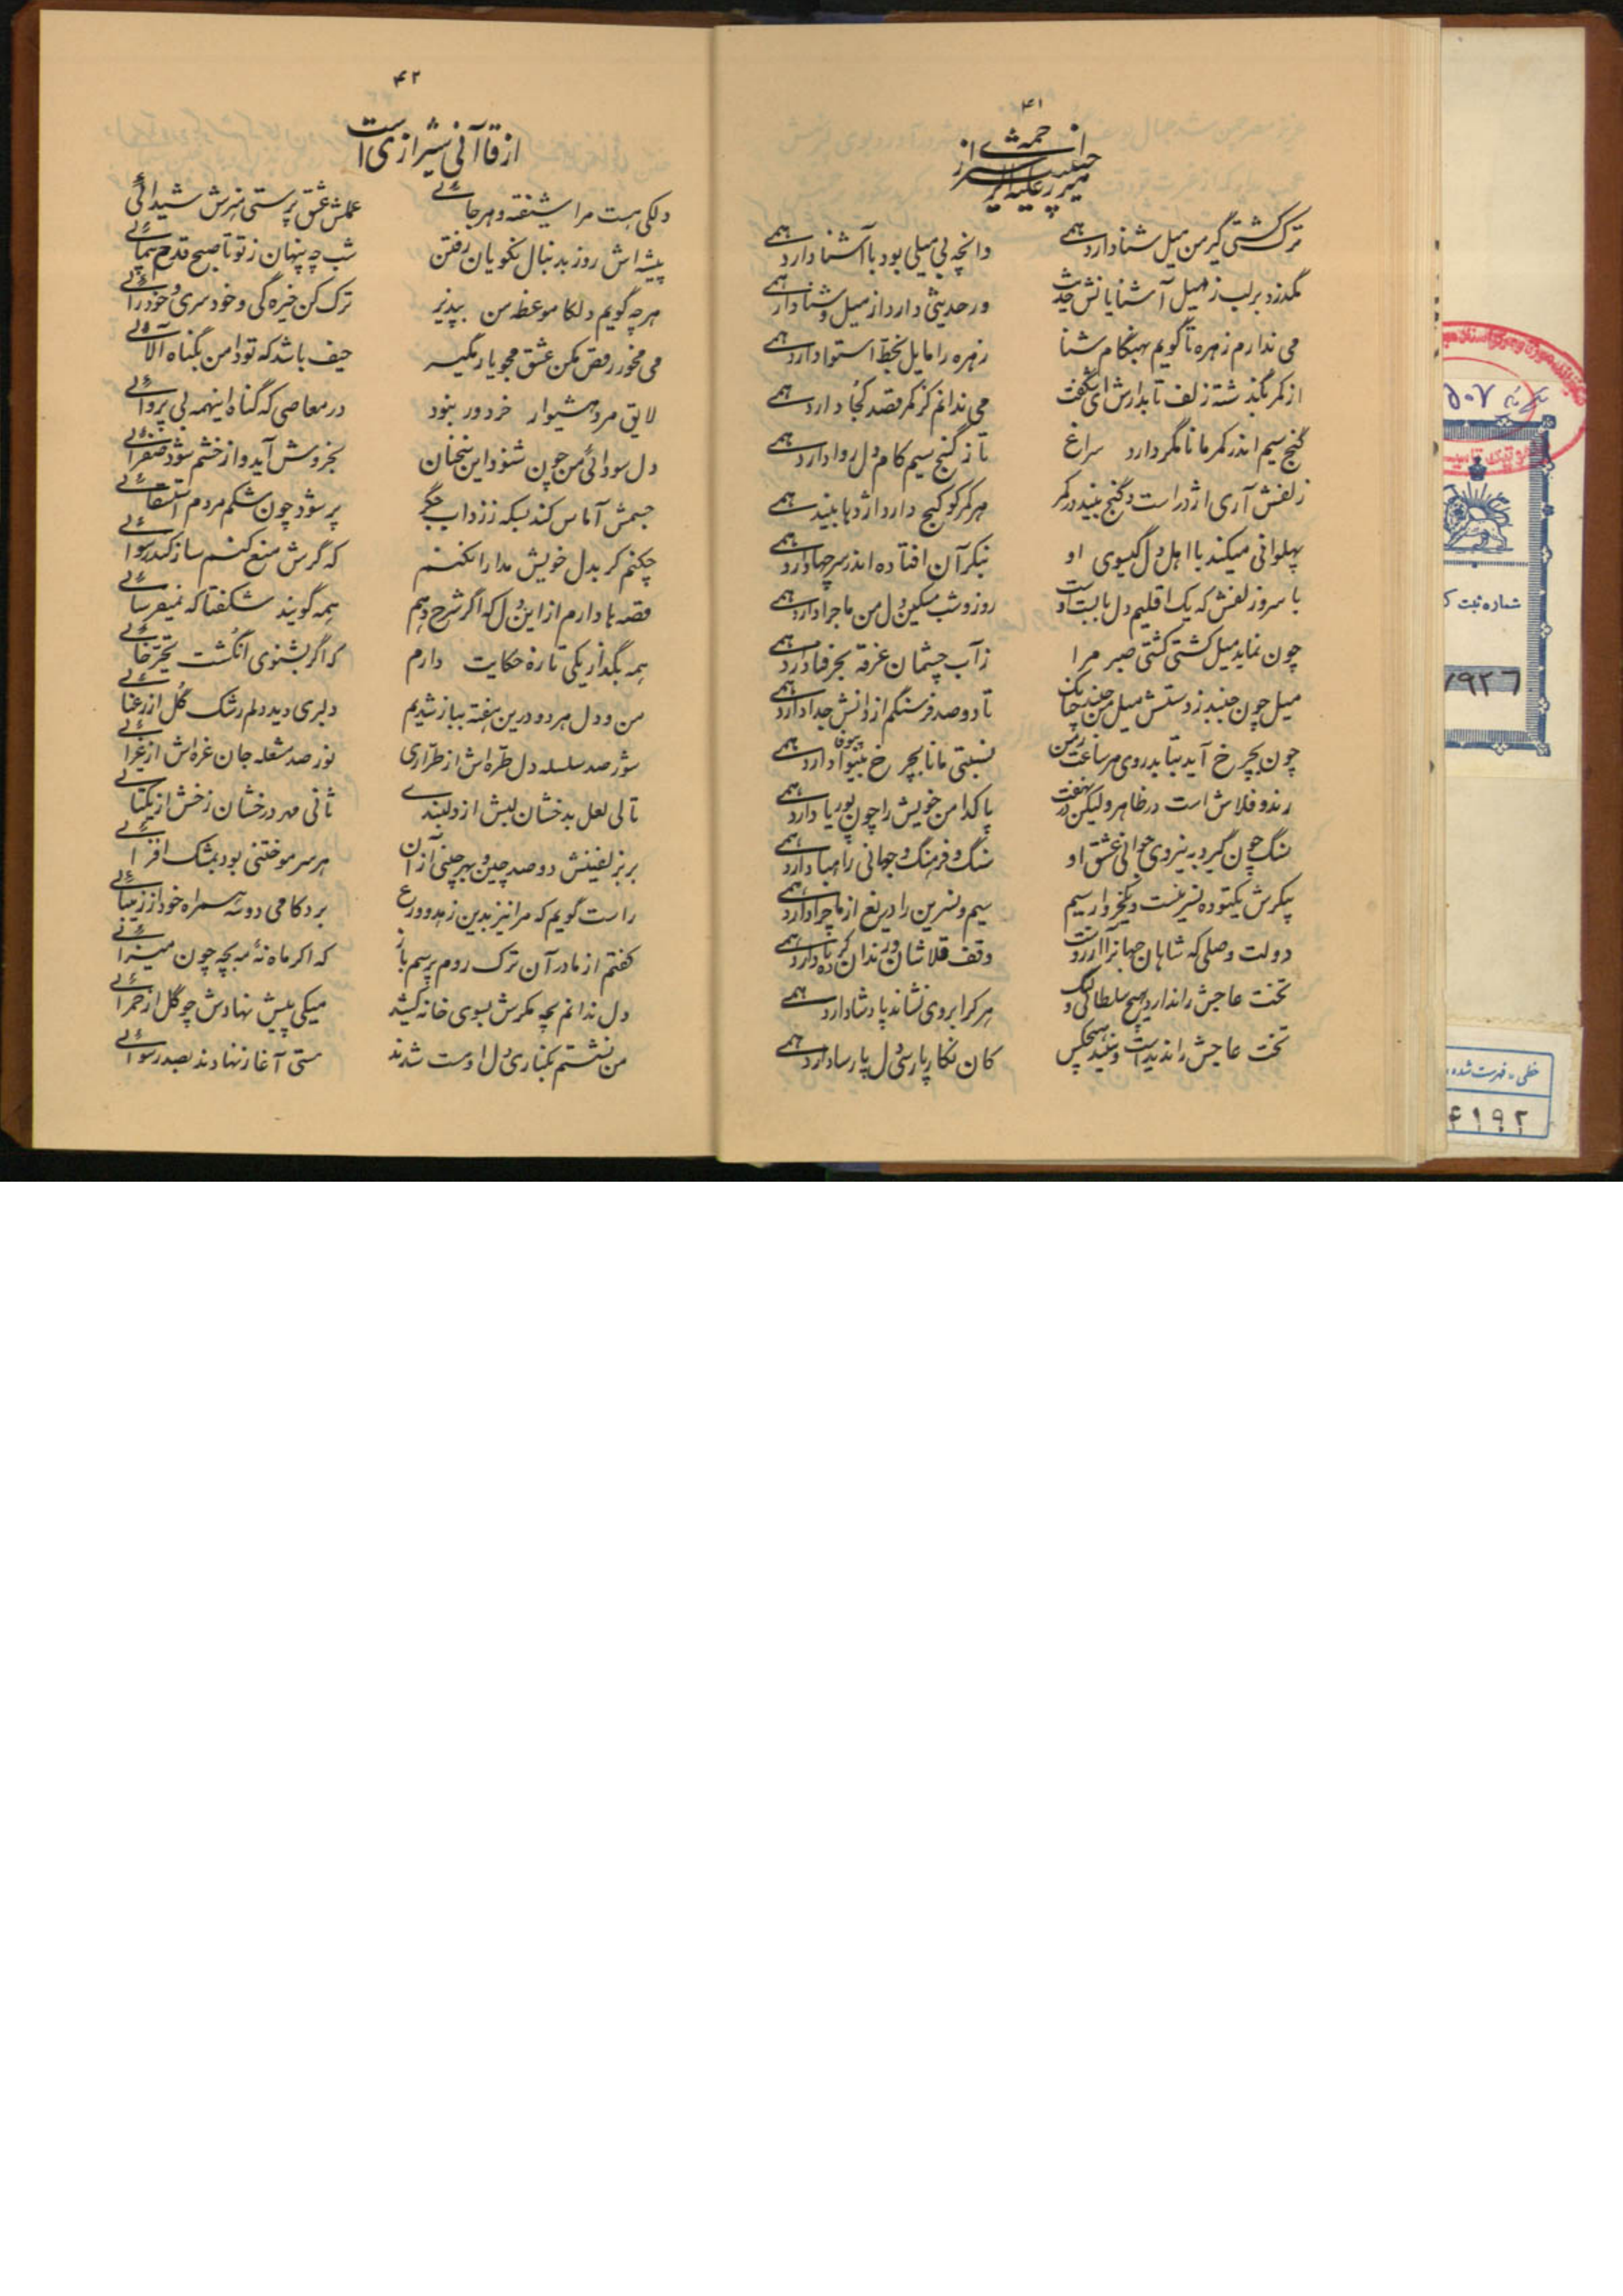 ۴۱
ترک کشتی گیر من میل شنا دارد همی
وانچه بی میلی بود با آشنا دارد همی
نگذرد بر لب ز میل آشنایانش حدیث
ور حدیثی دارد از میل و شنا دارد همی
می ندارم زهره تا گویم بهنگام شنا
زهره را مایل بخط استوا دارد همی
از کمر بگذشته زلف تابدارش ای شگفت
می ندانم کز کمر قصد کجا دارد همی
گنج سیم اندر کمر مانا مگر دارد سراغ
تا ز گنج سیم کام دل روا دارد همی
زلفش آری اژدر است و گنج بیند در کمر
هر کمر کو گنج دارد اژدها بیند همی
پهلوانی میکند با اهل دل گیسوی او
بنگر آن افتاده اندر سر چها دارد همی
با سر و زلفش که یک اقلیم دل پابست اوست
روز و شب مسکین دل من ماجرا دارد همی
چون نماید میل کشتی کشتی صبر مرا
زآب چشمان غرقه بحر فنا دارد همی
میل چون جنبد ز دستش میل من جنبد ز جا
تا دو صد فرسنگم از دانش جدا دارد همی
چون بچرخ آید بتابد روی هر ساعت ز من
نسبتی مانا بچرخ بیوفا دارد همی
رند و قلاش است در ظاهر ولیکن در نهفت
پاکدامن خویش را چون پوریا دارد همی
سنگ چون گیرد به نیروی جوانی عشق او
سنگ و فرهنگ جهانی را هبا دارد همی
پیکرش یکتوده نسرینست و یکخروار سیم
سیم و نسرین را دریغ از ما چرا دارد همی
دولت وصلی که شاهان جهانرا آرزوست
وقف قلاشان و رندان گدا دارد همی
تخت عاجش را ندارد هیچ سلطانی و لیک
هر کرا بر وی نشاند پادشا دارد همی
تخت عاجش را ندیدست و نبیند هیچکس
کان نگار پارسی دل پارسا دارد همی
۴۲
از قاآنی شیرازی است
دلکی هست مرا شیفته و هرجائی
عملش عشق پرستی هنرش شیدائی
پیشه اش روز بدنبال نکویان رفتن
شب چه پنهان ز تو تا صبح قدح پیمائی
هر چه گویم دلکا موعظه من بپذیر
ترک کن خیره گی و خودسری و خودرائی
می مخور رقص مکن عشق مجو یار مگیر
حیف باشد که تو دامن بگناه آلائی
لایق مرد هشیوار خردور نبود
در معاصی که گناه اینهمه بی پروائی
دل سودائی من چون شنود این سخنان
بخروش آید و از خشم شود صفرائی
جسمش آماس کند بسکه ز زرداب جگر
پر شود چون شکم مردم استسقائی
چکنم گر بدل خویش مدارا نکنم
که گرش منع کنم ساز کند رسوائی
قصه ها دارم از این دل که اگر شرح دهم
همه گویند شگفتا که نمیفرسائی
همه بگذار یکی تازه حکایت دارم
که اگر بشنوی انگشت تحیر خائی
من و دل هر دو درین هفته ببازار شدیم
دلبری دید دلم رشک گل از رعنائی
شور صد سلسله دل طره اش از طراری
نور صد مشعله جان غره اش از غرائی
تالی لعل بدخشان لبش از دلبندی
ثانی مهر درخشان رخش از یکتائی
بر بزلفینش دو صد چین و بهر چینی از آن
هر سر مو ختنی بود بمشک افزائی
راست گویم که مرا نیز بدین زهد و ورع
برد کامی دو سه همراه خود از زیبائی
گفتم از مادر آن ترک روم پرسم باز
که اگر ماه نه مه بچه چون میزائی
دل ندانم بچه مکرش بسوی خانه کشید
میکی پیش نهادش چو گل از حمرائی
من نشستم بکناری دل او مست شدند
مستی آغاز نهادند بصد رسوائی
شماره ثبت ک
۷۹۲۶
خطی، فهرست شده
۴۱۹۲